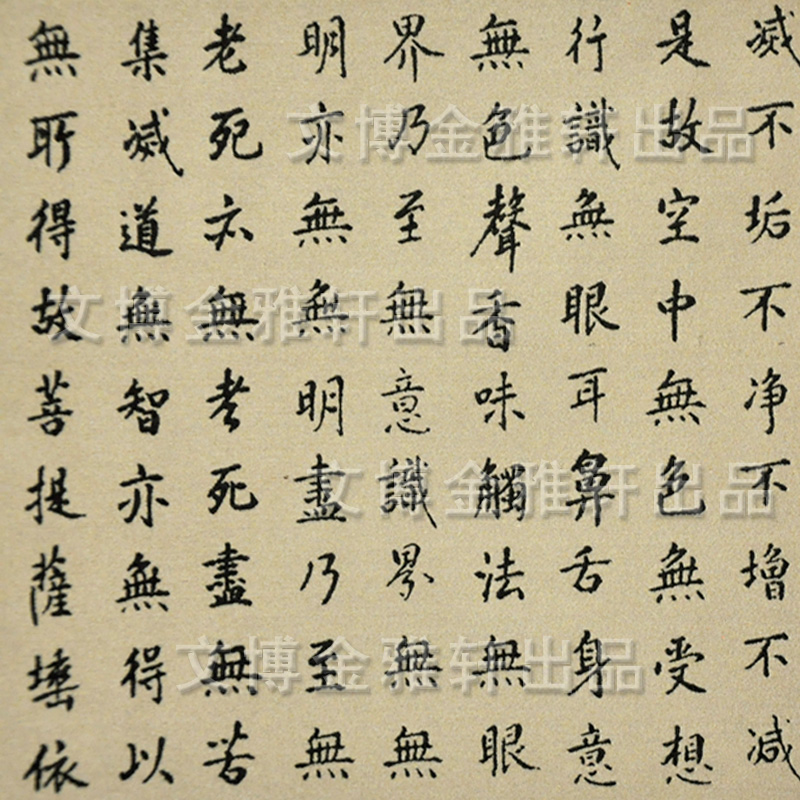 滅不垢不净不增不減
是故空中無色無受想
行識無眼耳鼻舌身意
無色聲香味觸法無眼
界乃至無意識界無無
明亦無無明盡乃至無
老死亦無老死盡無苦
集滅道無智亦無得以
無所得故菩提薩埵依
文博金雅轩出品
文博金雅轩出品
文博金雅轩出品
文博金雅轩出品